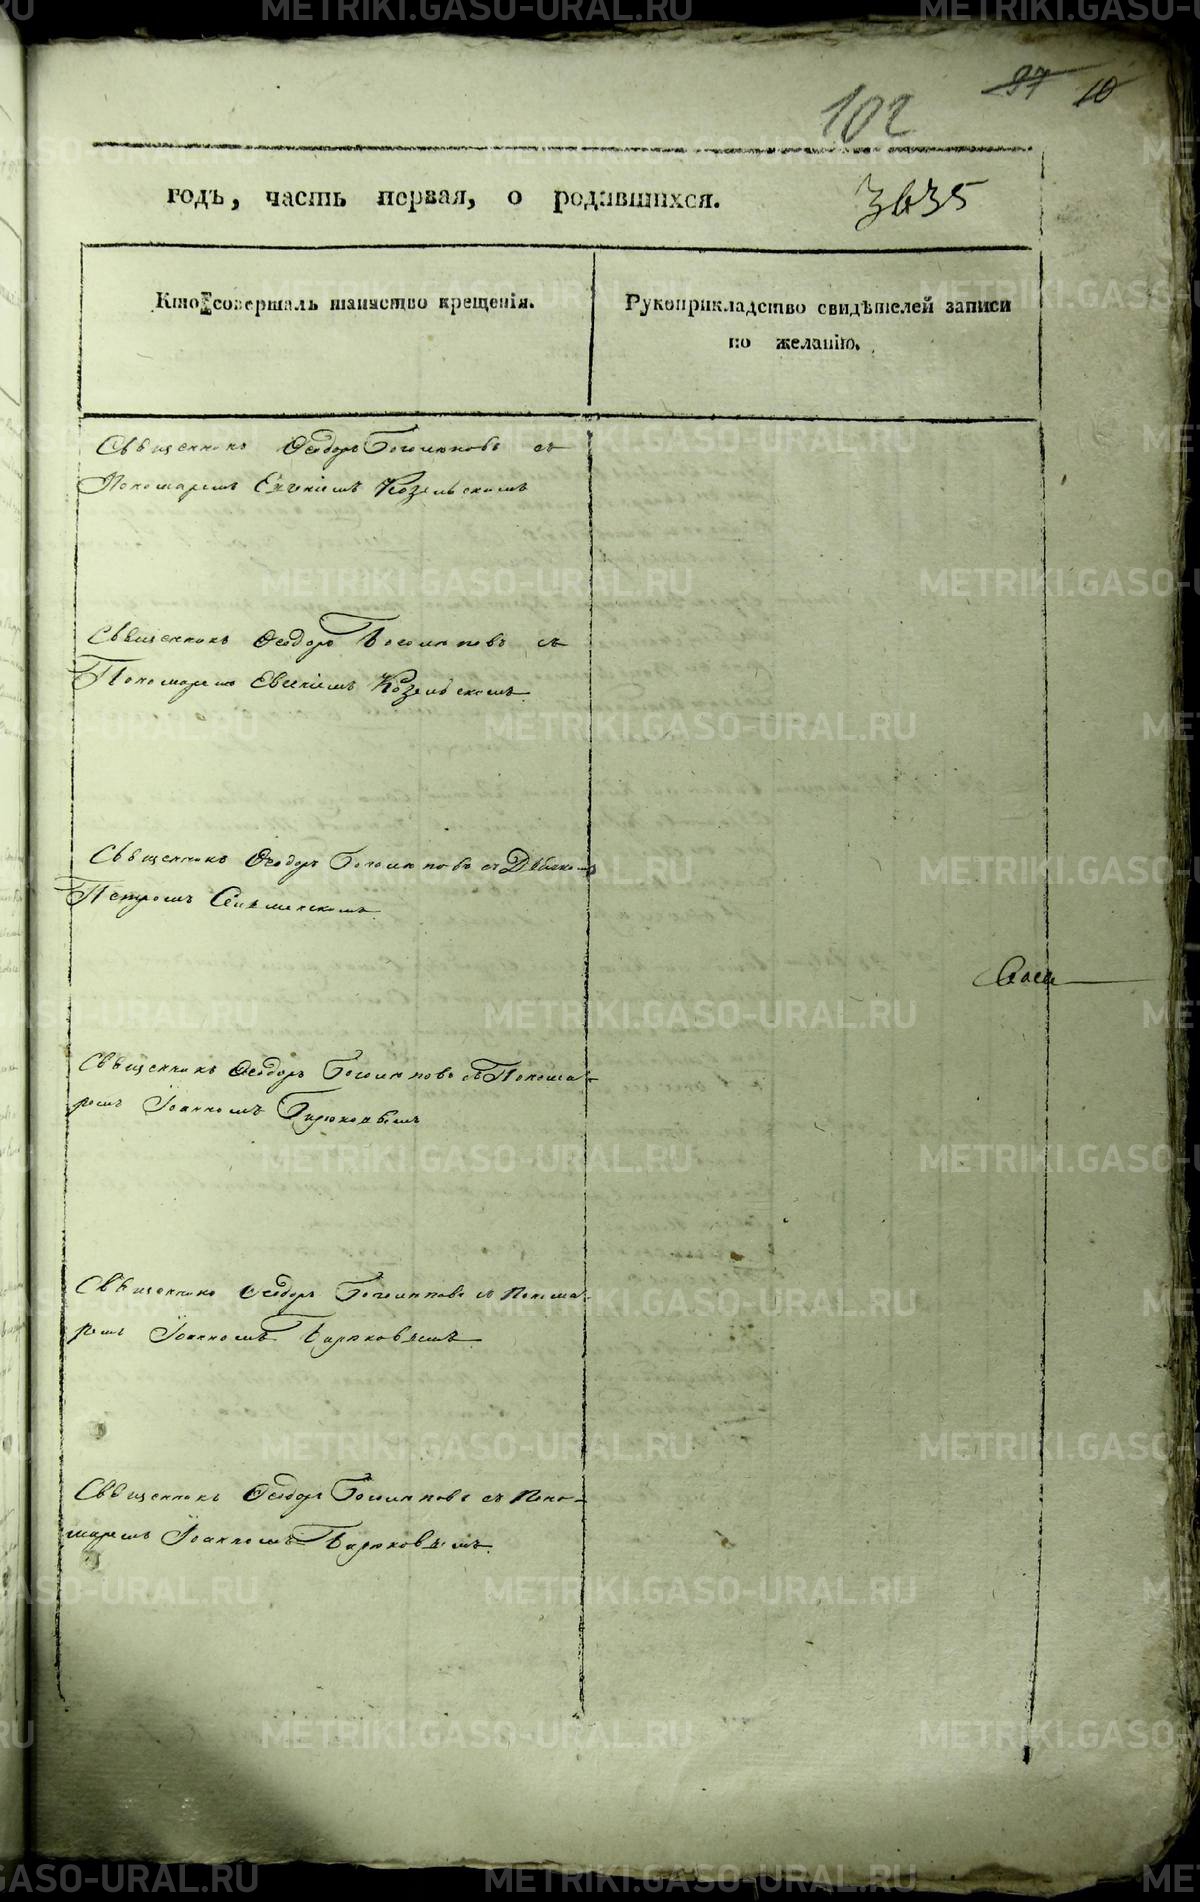 37 10
102
годъ, часть первая, о родившихся. 3635
Кто совершалъ таинство крещенія.
Рукоприкладство свидѣтелей записи
по желанію.
Священникъ Ѳеодоръ Боголиповъ съ
Пономаремъ Евгеніемъ Козельскимъ
Священникъ Ѳеодоръ Боголиповъ съ
Пономаремъ Евгеніемъ Козельскимъ
Священникъ Ѳеодоръ Боголиповъ съ Дьячкомъ
Петромъ
Священникъ Ѳеодоръ Боголиповъ съ Понома-
ремъ Іоанномъ Бирюковымъ
Священникъ Ѳеодоръ Боголиповъ съ Понома-
ремъ Іоанномъ Бирюковымъ
Священникъ Ѳеодоръ Боголиповъ съ Поно-
маремъ Іоанномъ Бирюковымъ
METRIKI.GASO-URAL.RU